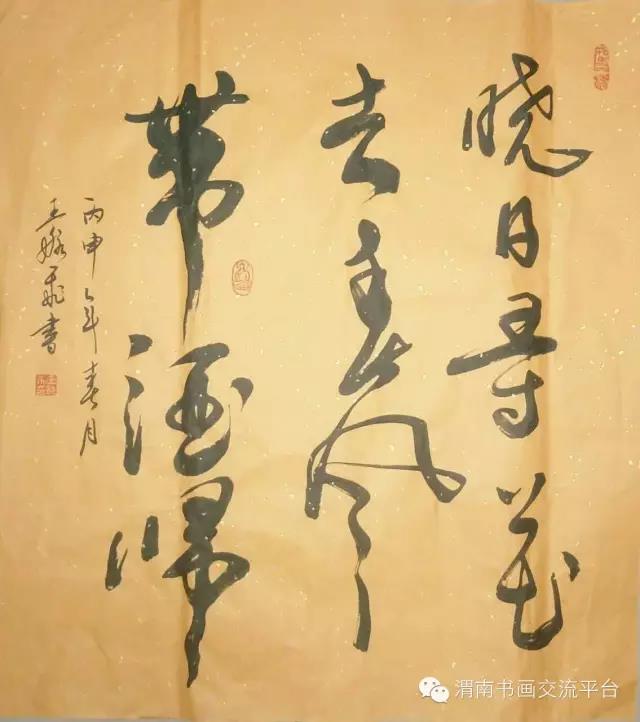 晓日寻花
去春风
带酒归
丙申年春月
王
书
渭南书画交流平台